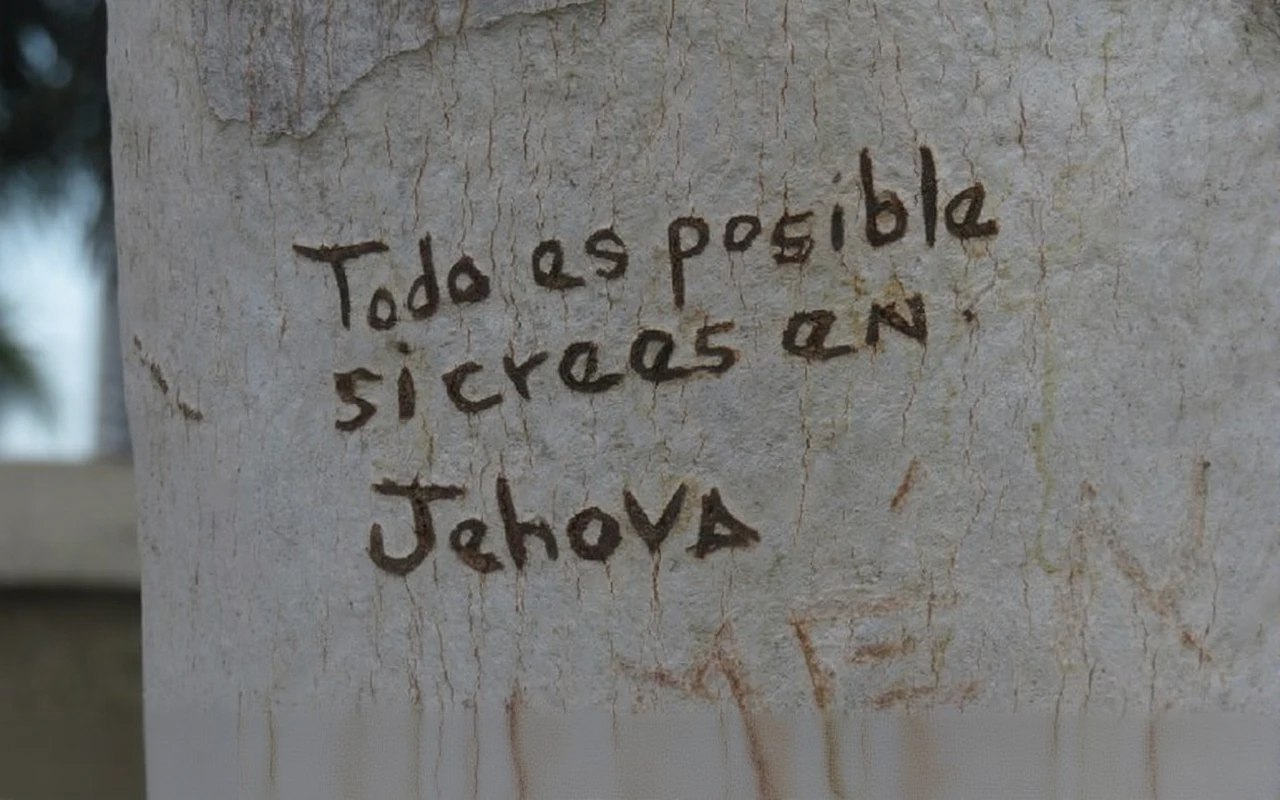 Todo es posible
si crees en.
JehovA